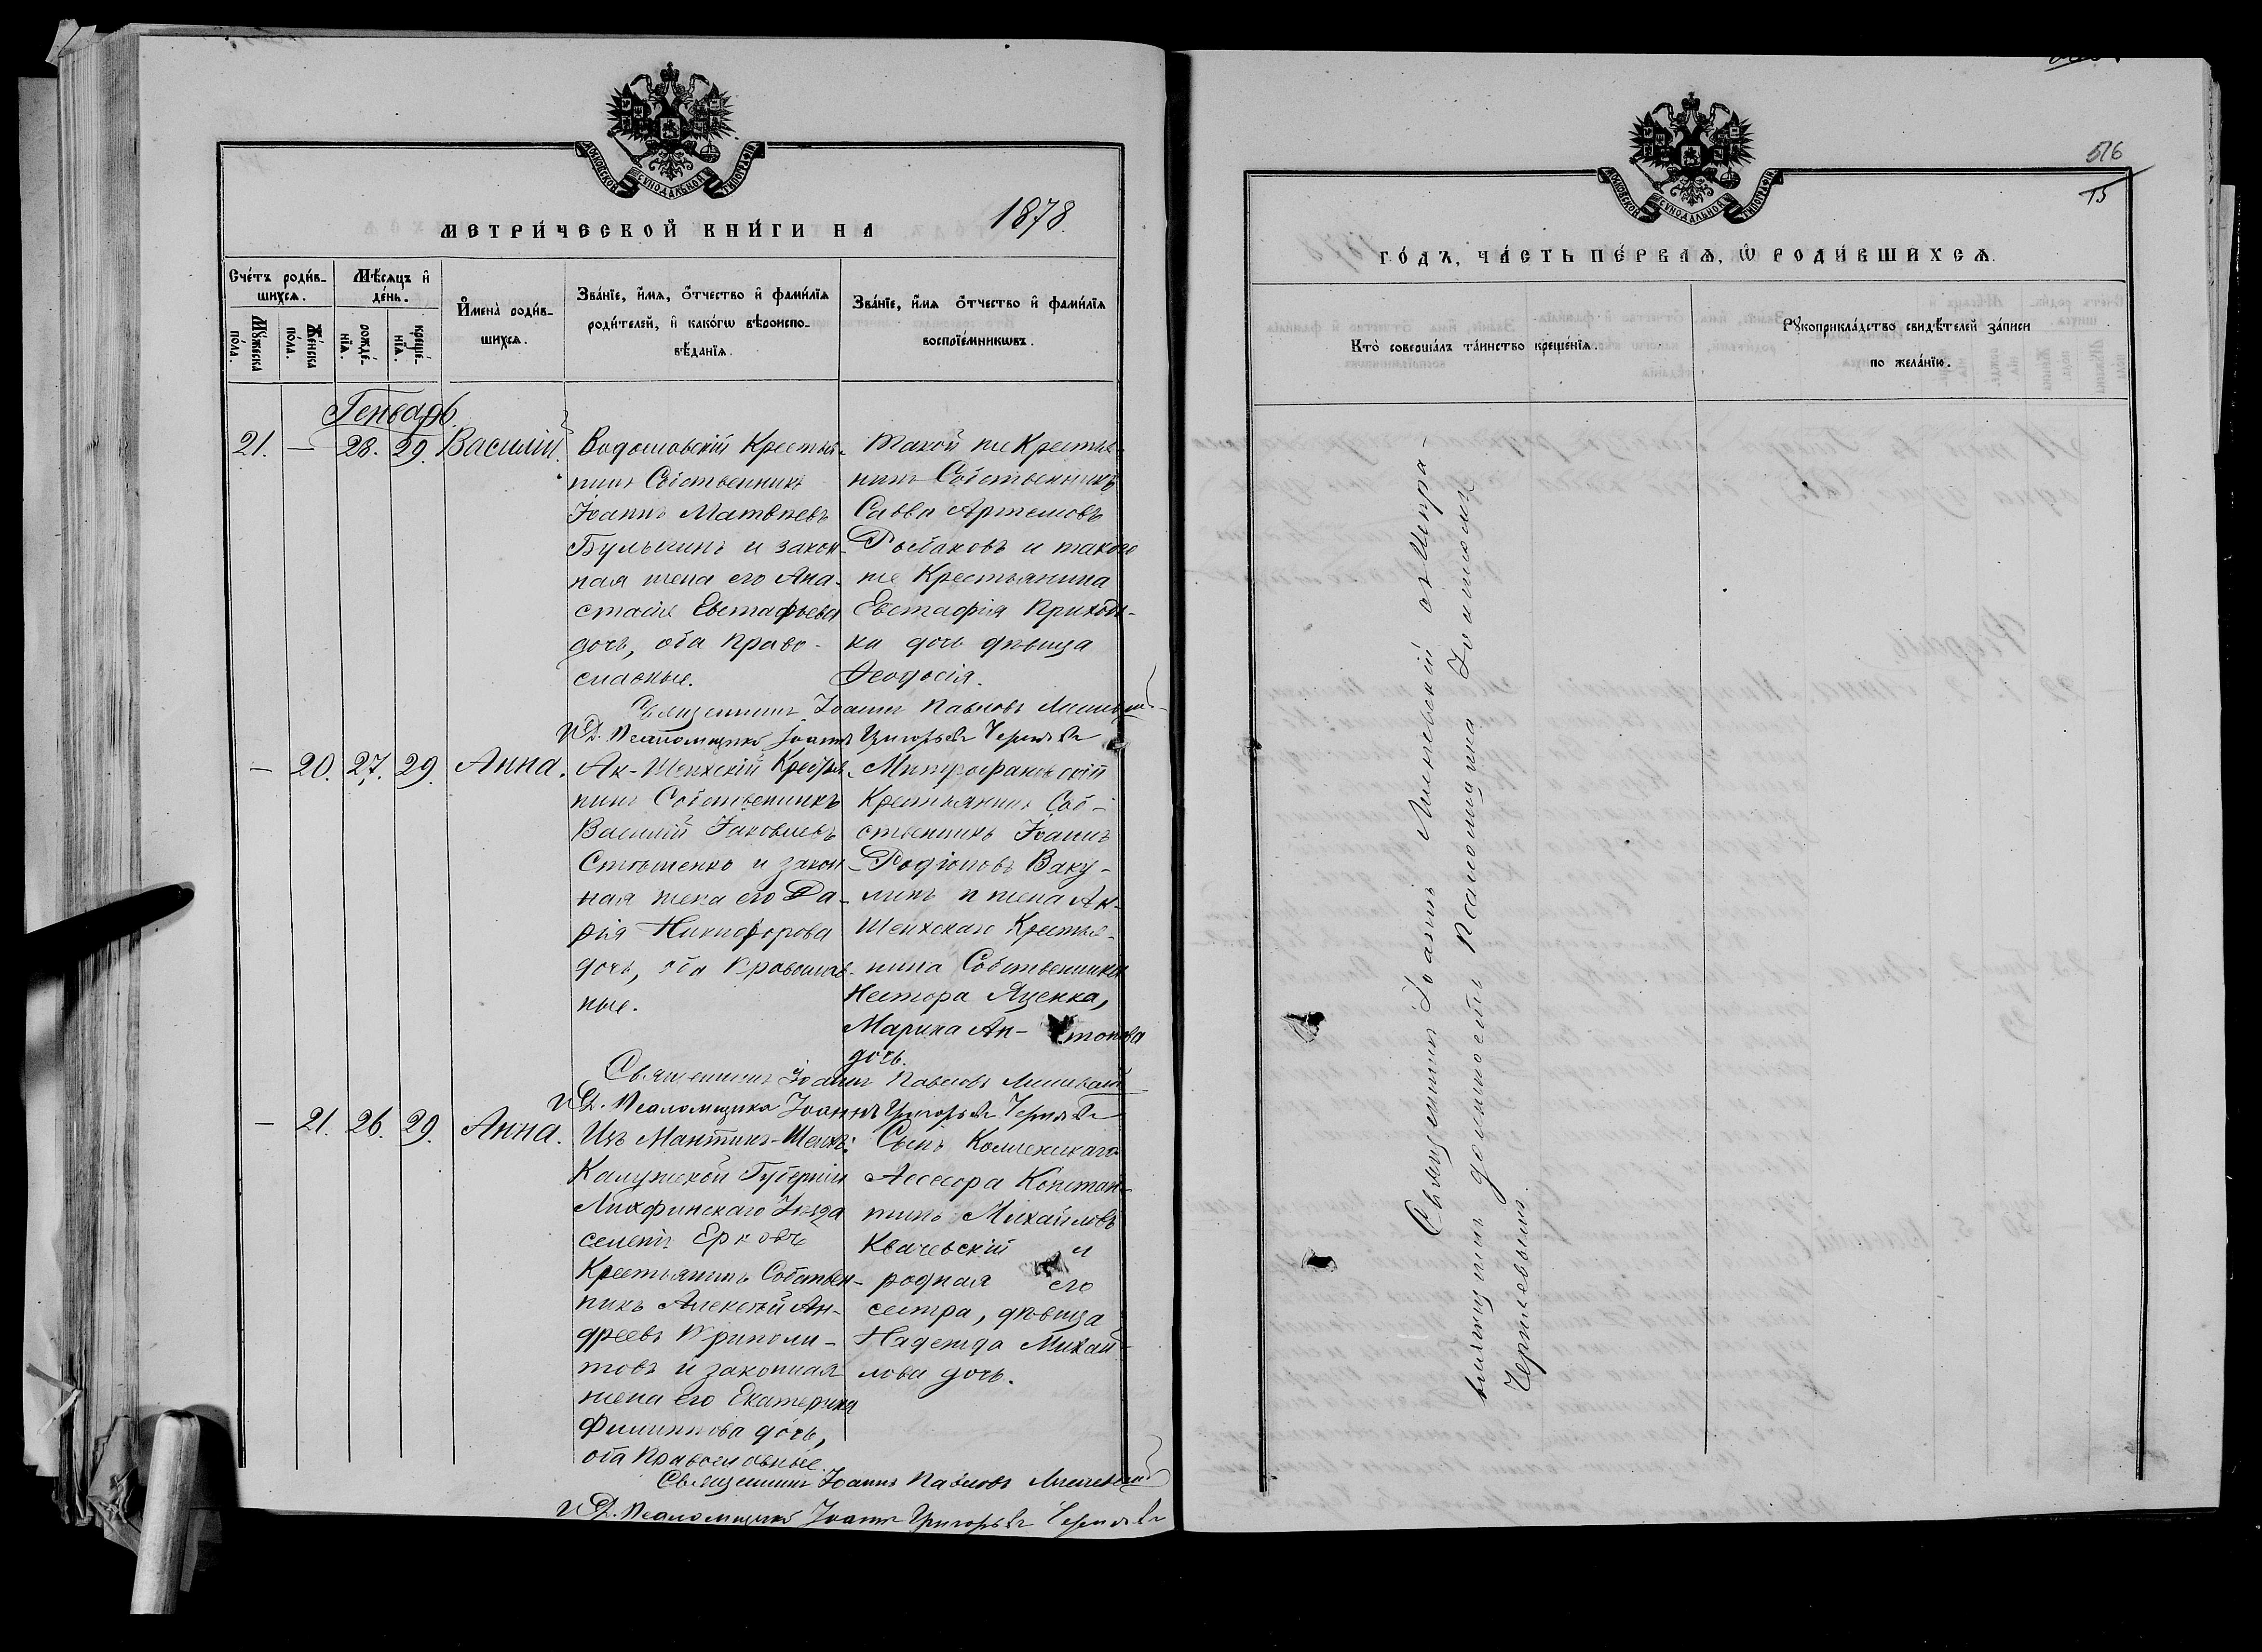 МОСКОВСКОЙ СѴНОДАЛЬНОЙ ТИПОГРАФІИ
МЕТРИ́ЧЕСКОЙ КНИ́ГИ НА 1878.
Сче́тъ роди́в-
шихся.
Му́жеска по́ла.
Же́нска по́ла.
Мѣ́сяцъ и́ де́нь.
рожде́-
нїя.
креще́-
нїя.
И҆мена̀ роди́в-
шихся.
Зва́нїе, и҆́мя, ѻ҆́тчество и҆ фами́лїя
роди́телей, и҆ како́гѡ вѣроиспо-
вѣ́данїя.
Зва́нїе, и҆́мя ѻ҆́тчество и҆ фами́лїя
воспрїе́мникѡвъ.
Генварь
21. — 28. 29. Василій.
Крестья-
нинъ Собственникъ
Іоаннъ Матвѣевъ
Булыгинъ и закон-
ная жена его Ана-
стасія Евстафьева
дочь, оба право-
славные.
Такой же Крестья-
нинъ Собственникъ
Савва Артемовъ
и такого
же Крестьянина
Евстафія Приходь-
ка дочь дѣвица
Ѳеодосія.
Священникъ Іоаннъ Павловъ
И. Д. Псаломщика Іоаннъ Григорьевъ
— 20. 27. 29. Анна.
Ак-Шеихскій Крестья-
нинъ Собственникъ
Василій Іаковлевъ
и закон-
ная жена его Да-
рія Никифорова
дочь, оба Православ-
ные.
Митрофановскій
Крестьянинъ Соб-
ственникъ Іоаннъ
Родіоновъ Ваку-
линъ и жена Ак-
Шеихскаго Крестья-
нина Собственника
Нестора Яценка,
Марина Ан-тонова
дочь.
Священникъ Іоаннъ Павловъ
И. Д. Псаломщика Іоаннъ Григорьевъ
— 21. 26. 29. Анна.
Изъ
Калужской Губерніи
Уѣзда
селенія
Крестьянинъ Собствен-
никъ Алексѣй Ан-
дреевъ
и законная
жена его Екатерина
Филиппова дочь,
оба Православные.
Сынъ Коллежскаго
Ассесора Констан-
тинъ Михайловъ
Квачевскій и
родная его
сестра, дѣвица
Надежда Михай-
лова дочь.
Священникъ Іоаннъ Павловъ
И. Д. Псаломщика Іоаннъ Григорьевъ
516
15
МОСКОВСКОЙ СѴНОДАЛЬНОЙ ТИПОГРАФІИ
ГО́ДЪ, ЧА́СТЬ ПЕ́РВАЯ, Ѡ҆ РОДИ́ВШИХСЯ.
Кто̀ соверша́лъ та́инство креще́нїя.
Рꙋкоприкла́дство свидѣ́телей за́писи
по жела́нїю.
Священникъ Іоаннъ съ испра-
вляющимъ должность Псаломщика Іоанномъ